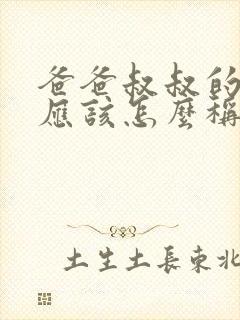 爸爸叔叔的
應該怎麼稱
土生土長東北